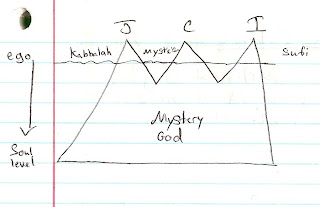 J C I
ego Kabbalah Sufi
Mystery
God
Soul
level